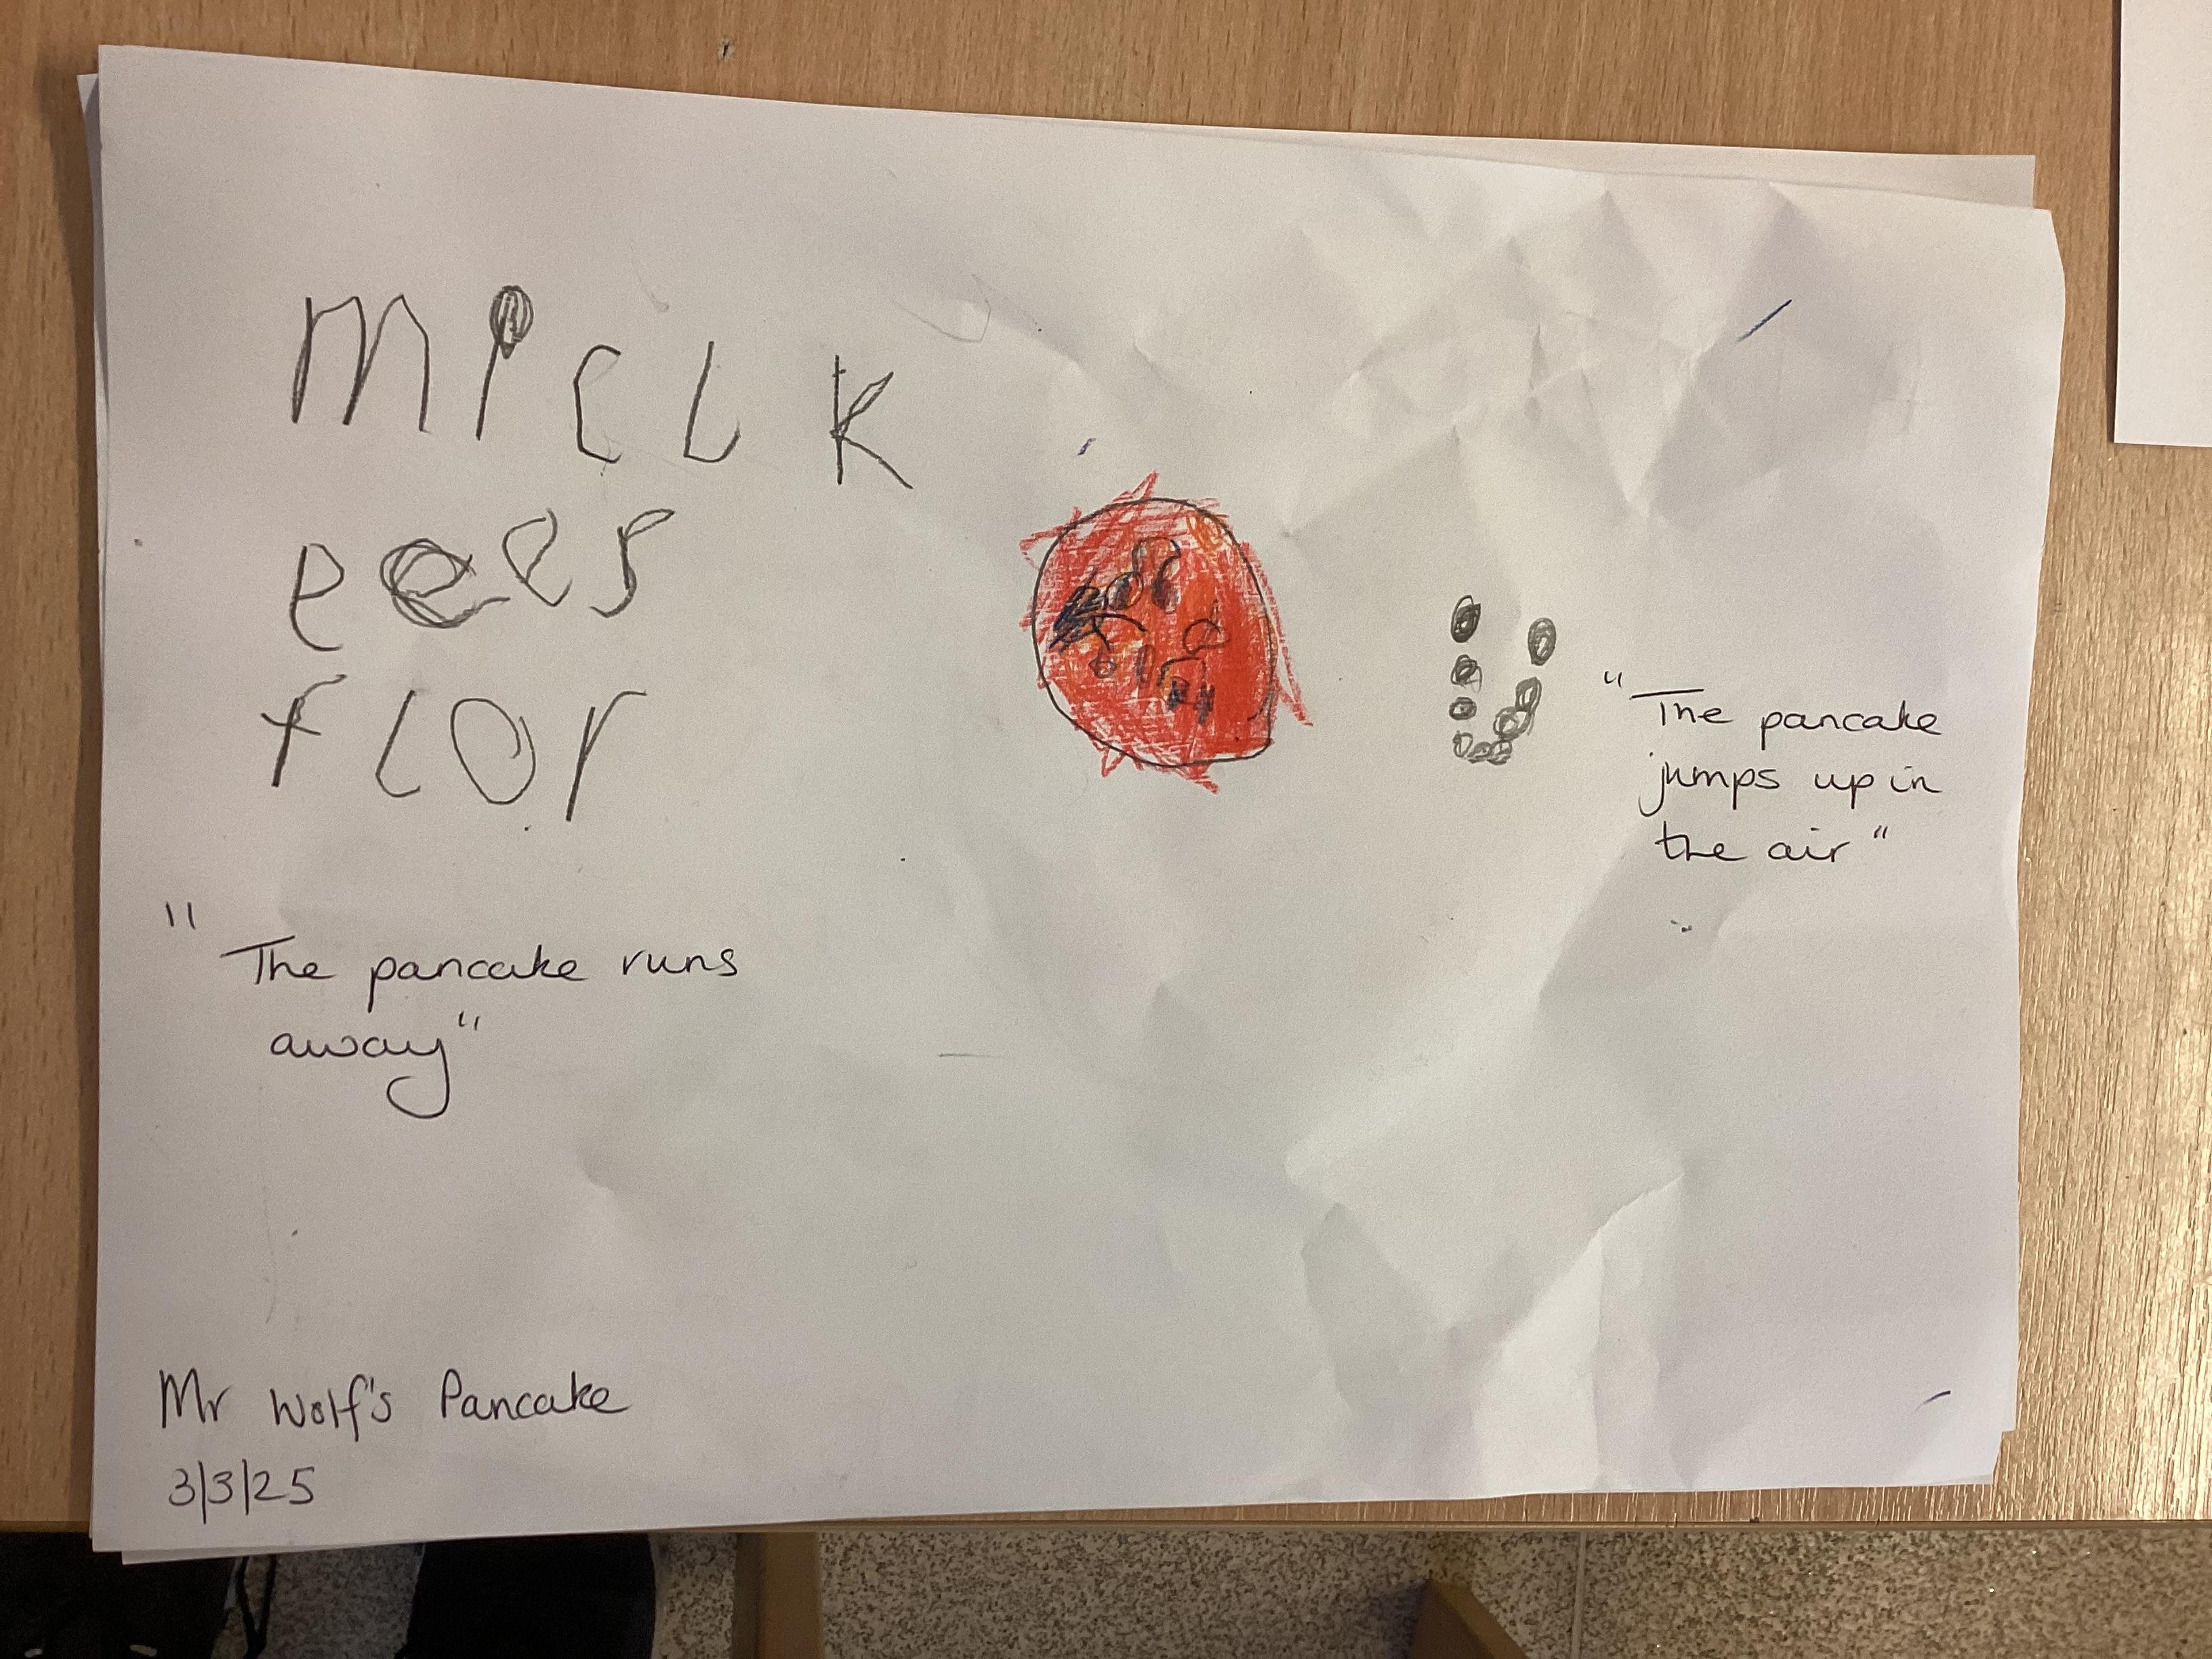 miclk
eees
flor
"The pancake runs
away"
"The pancake
jumps up in
the air"
Mr Wolf's Pancake
3/3/25